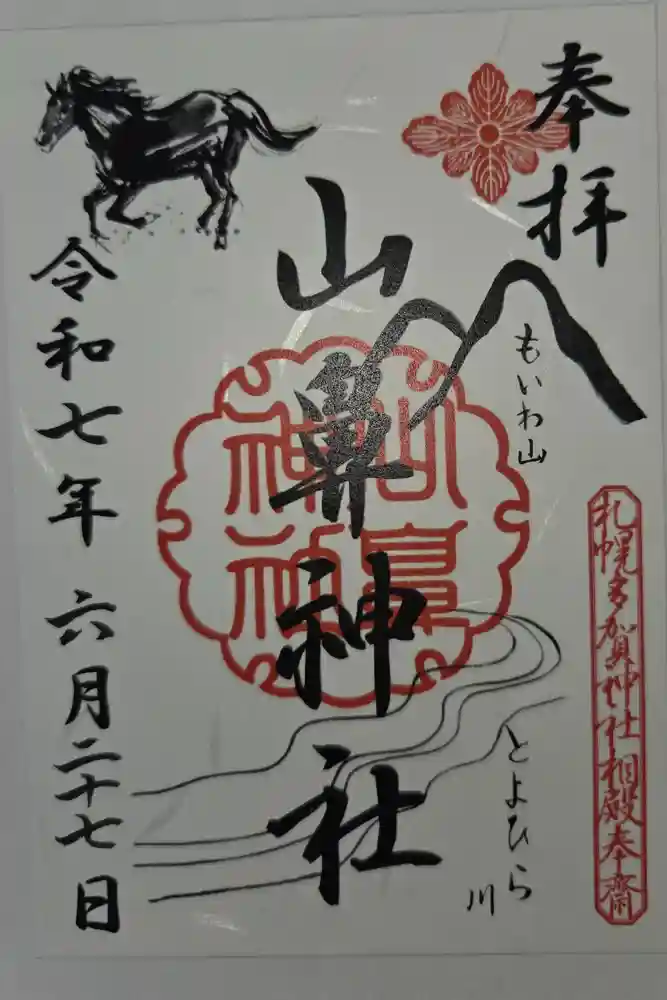 奉拝
もいわ山
札幌多賀神社相殿奉齋
とよひら川
山鼻神社
山鼻神社
令和七年 六月二十七日